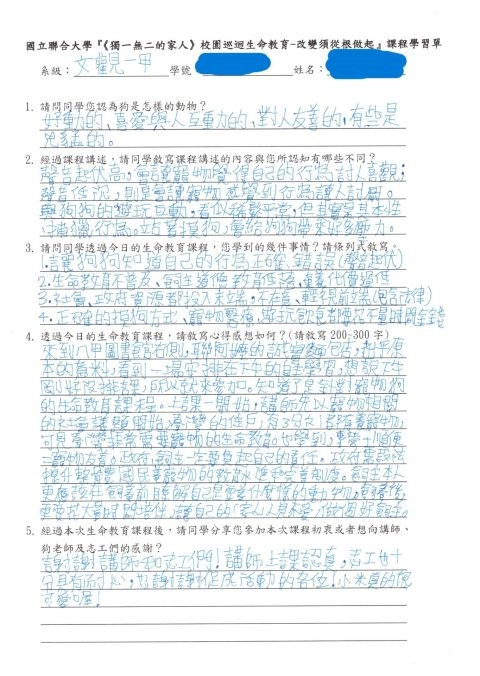 國立聯合大學『《獨一無二的家人》校園巡迴生命教育-改變須從根做起』課程學習單
系級：文觀一甲 學號 姓名：
1. 請問同學您認為狗是怎樣的動物？
好動的、喜愛與人互動的、對人友善的，有些是
兇猛的。
2. 經過課程講述，請同學敘寫課程講述的內容與您所認知有哪些不同？
聲音起伏高，會讓寵物覺得自己的行為討人喜歡；
聲音低沉，則是會讓寵物感覺到行為讓人討厭。
與狗狗的遊玩互動，看似稀鬆平常，但其實是其本性
狩獵行為。站著摸狗，會給狗狗帶來好多壓力。
3. 請問同學透過今日的生命教育課程，您學到的幾件事情？請條列式敘寫。
1.讓狗狗知道自己的行為正確、錯誤（聲音起伏）
2.生命教育不普及、飼主道德教育低落、棄養代價過低
3.社會、政府資源都投入末端，不在意、輕視前端（包含法律）
4.正確的摸狗方式、寵物緊張、遊玩飲食都要花不少時間金錢
4. 透過今日的生命教育課程，請敘寫心得感想如何？(請敘寫 200-300 字)
來到八甲圖書館右側，
原本的意料，看到一場安排在下午的自主學習，想說下午
剛好沒排課，所以就來參加。知道了是針對寵物狗
的生命教育課程。上課一開始，講師先以寵物相關
的社會議題開始，臺灣的住戶，有3只1都有養寵物，
可是臺灣非常需要寵物的生命教育。也學到，
寵物友善。政府、飼主一定要負起自己的責任。政府需設法
提升整體國民養寵物的教育水準和完善制度。飼主本人
更應該在飼養前瞭解自己是要養什麼樣的動物，
更要花大量時間陪伴，讓自己的「家人」真不愛，做個好飼主。
5. 經過本次生命教育課程後，請同學分享您參加本次課程初衷或者想向講師、
狗老師及志工們的感謝？
謝謝講師和志工們！講師上課認真，志工也十
分具有耐心，也謝謝促成活動的各位！小米真的很
可愛喔！